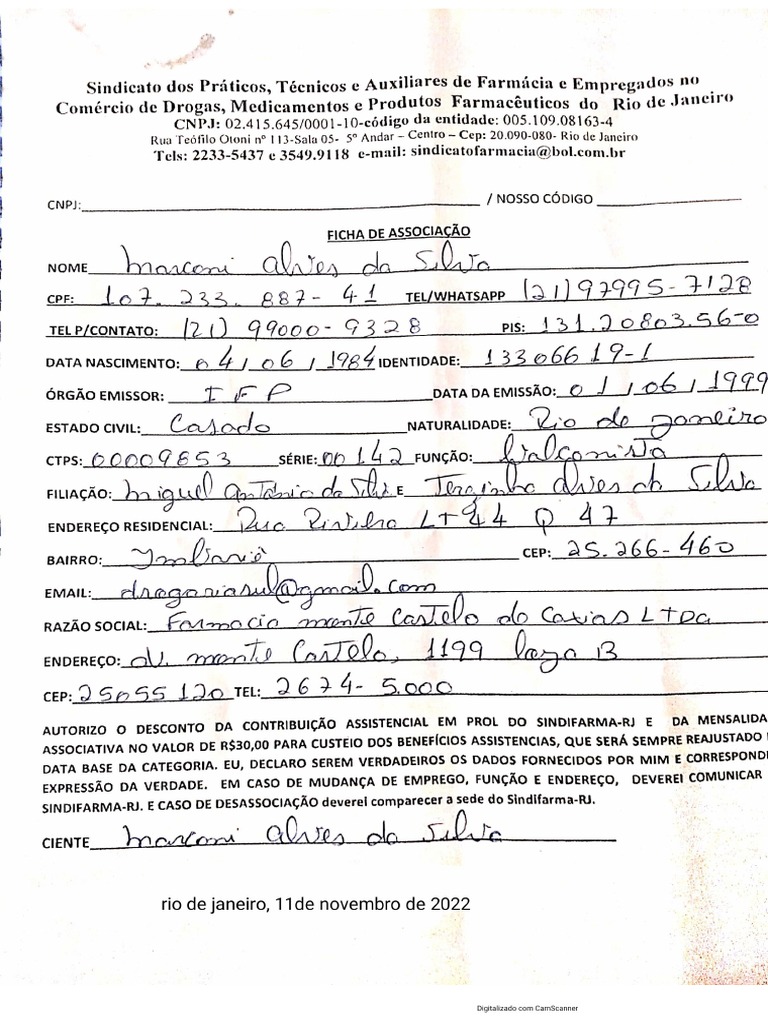 Sindicato dos Práticos, Técnicos e Auxiliares de Farmácia e Empregados no
Comércio de Drogas, Medicamentos e Produtos Farmacêuticos do Rio de Janeiro
CNPJ: 02.415.645/0001-10-código da entidade: 005.109.08163-4
Rua Teófilo Otoni nº 113-Sala 05- 5º Andar – Centro – Cep: 20.090-080- Rio de Janeiro
Tels: 2233-5437 e 3549.9118 e-mail: sindicatofarmacia@bol.com.br
CNPJ: / NOSSO CÓDIGO
FICHA DE ASSOCIAÇÃO
NOME Marconi Alves da Silva
CPF: 107.233.887-41 TEL/WHATSAPP (21)97995-7128
TEL P/CONTATO: (21) 99000-9328 PIS: 131.20803.56-0
DATA NASCIMENTO: 04/06/1984 IDENTIDADE: 13306619-1
ÓRGÃO EMISSOR: IFP DATA DA EMISSÃO: 01/06/1999
ESTADO CIVIL: Casado NATURALIDADE: Rio de Janeiro
CTPS: 00009853 SÉRIE: 00142 FUNÇÃO: Balconista
FILIAÇÃO: Miguel Antônio da Silva E Terezinha Alves da Silva
ENDEREÇO RESIDENCIAL: Rua Rivelino LT 44 Q 47
BAIRRO: Imbariê CEP: 25.266-460
EMAIL: drogariasul@gmail.com
RAZÃO SOCIAL: Farmacia monte Castelo de Caxias LTDA
ENDEREÇO: Av. monte Castelo, 1199 loja B
CEP: 25055120 TEL: 2674-5.000
AUTORIZO O DESCONTO DA CONTRIBUIÇÃO ASSISTENCIAL EM PROL DO SINDIFARMA-RJ E DA MENSALIDA
ASSOCIATIVA NO VALOR DE R$30,00 PARA CUSTEIO DOS BENEFÍCIOS ASSISTENCIAS, QUE SERÁ SEMPRE REAJUSTADO
DATA BASE DA CATEGORIA. EU, DECLARO SEREM VERDADEIROS OS DADOS FORNECIDOS POR MIM E CORRESPOND
EXPRESSÃO DA VERDADE. EM CASO DE MUDANÇA DE EMPREGO, FUNÇÃO E ENDEREÇO, DEVEREI COMUNICAR
SINDIFARMA-RJ. E CASO DE DESASSOCIAÇÃO deverei comparecer a sede do Sindifarma-RJ.
CIENTE Marconi Alves da Silva
rio de janeiro, 11de novembro de 2022
Digitalizado com CamScanner